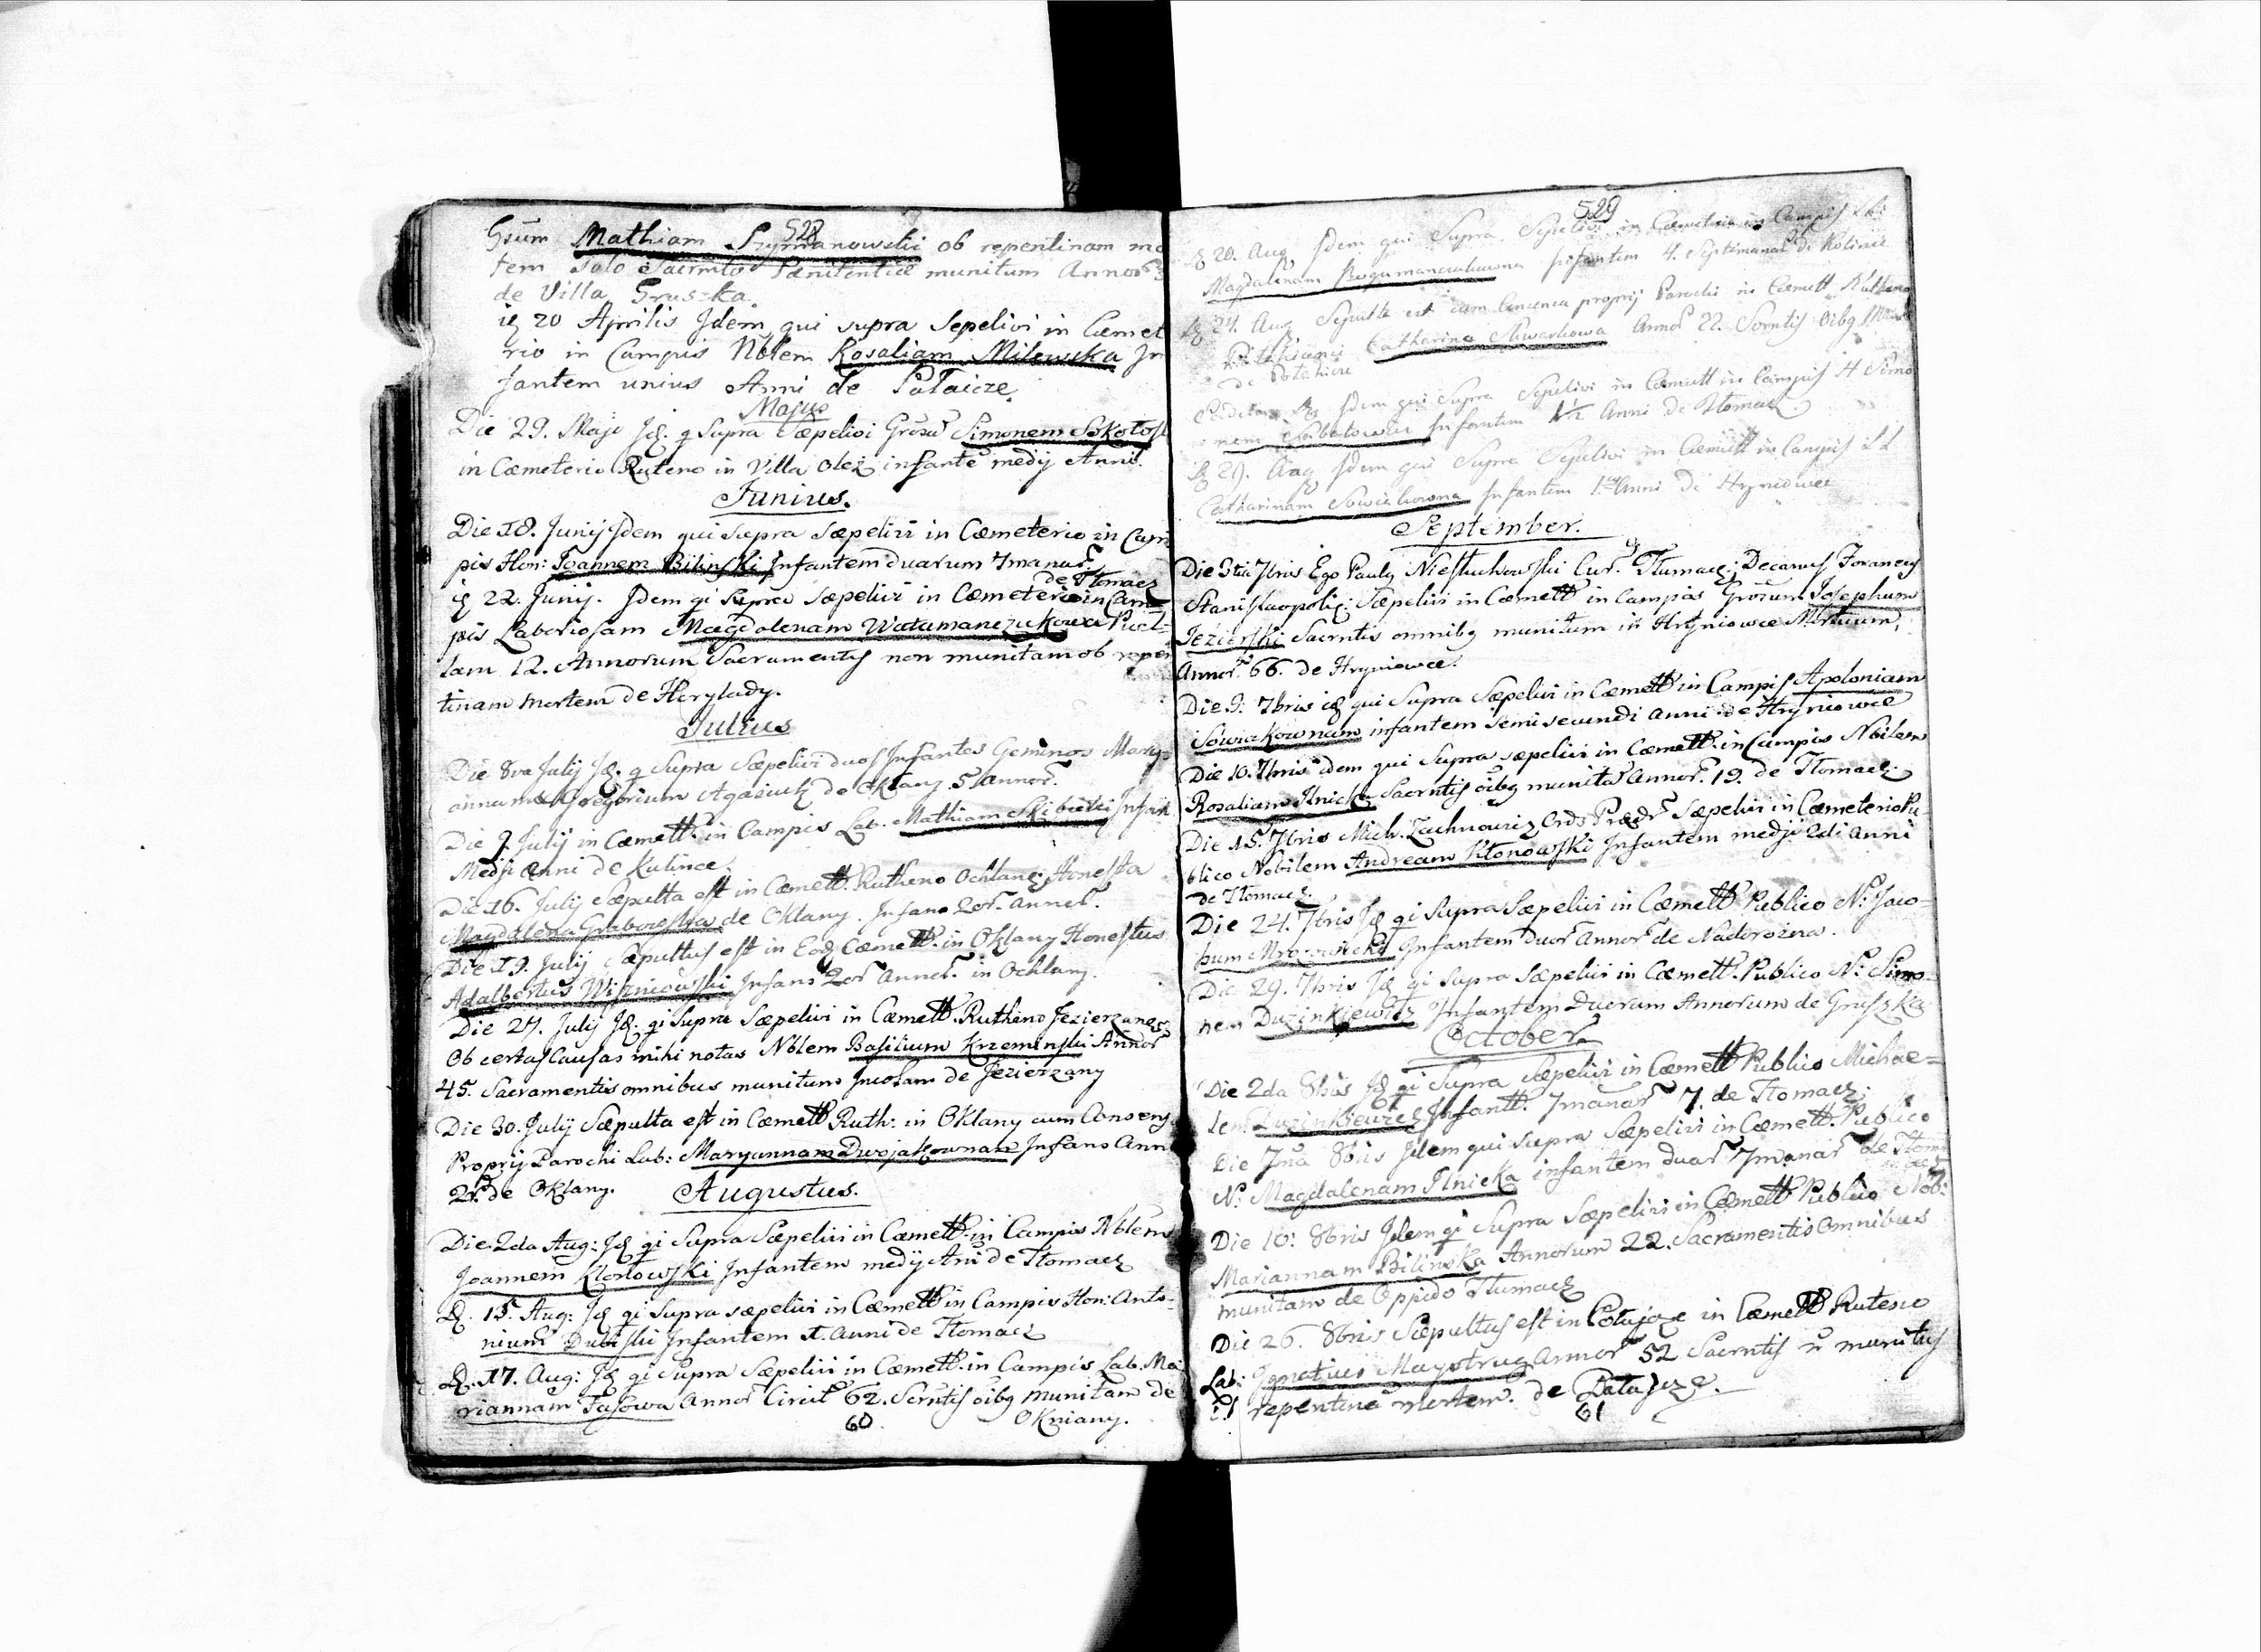 528
Gsum Mathiam Szymanowski ob repentinam mo
tem solo Sacrmto Pænitentiæ munitum Annor
de Villa Gruszka
20 Aprilis Idem qui supra Sepelivi in Cæmet
rio in Campis Nblem Rosaliam Milewska In
fantem unius Anni de Pałaicze
Majus
Die 29. Maji Id. q Supra Sæpelivi Gsum Simonem Sokołosk
in Cæmeterio Ruteno in Villa Oleź infante medij Anni.
Junius.
Die 18. Junij Idem qui supra Sæpelivi in Cæmeterio in Cam
pis Hon: Joannem Bilinski Infantem duarum 7manar
de Tłomacz
22. Junij. Idem qi Supra Sæpelivi in Cæmeterio in Cam
pis Laboriosam Magdalenam Watamanczukowa Puel-
lam 12. Annorum Sacramentis non munitam ob repen
tinam mortem de Horylady.
Julius
Die 8va Julij Id. q Supra Sæpelivi duos Infantes Geminos Mary-
annam & Gregorium Agasiuk de Okłany 5 annor.
Die 9. Julij in Cæmett. in Campis Lab. Mathiam Skibicki Infan
Medji Anni de Kulince
Die 16. Julij Sæpulta est in Cæmett. Rutheno Ochlane Honesta
Magdalena Grabowska de Okłany. Infans 2or. annor.
Die 19. Julij Sæpultus est in Eod Cæmett. in Okłany Honestus
Adalbertus Wiszniowski Infans 2or annor. in Ochlany.
Die 27. Julij Id. qi Supra Sæpelivi in Cæmett. Rutheno Jezierzanes
Ob certas Causas mihi notas Nblem Basilium Krzeminski Annor
45. Sacramentis omnibus munitum Incolam de Jezierzany
Die 30. Julij Sæpulta est in Cæmett Ruth: in Okłany cum Consens
Proprij Parochi Lab: Maryannam Dwojakownam Infans Ann
2r. de Okłany.
Augustus.
Die 2da Aug: Id qi Supra Sæpelivi in Cæmett. in Campis Nblem
Joannem Kłonowski Infantem medij Ani de Tłomacz
D. 15. Aug: Id qi Supra Sæpelivi in Cæmett in Campis Hon: Anto-
nium Dubiski Infantem 1. anni de Tłomacz
D. 17. Aug: Id qi Supra Sæpelivi in Cæmett. in Campis Lab. Ma
riannam Fusowa Annor Circit 62. Scrntis oibg munitam de
Okniany.
60
529
20. Aug Idem qui Supra Sepelivi in Cæmeterio in Campis
Magdalenam infantem 4. Septimanar de
24. Aug Sepulta est cum licencia proprij Parochi in Cæmett Rutheno
Catharina Annor 22. Scrntis oibg
de
Eadem Idem qui Supra Sepelivi in Cæmett in Campis H Simo
nem Infantem 1½ Anni de Tłomacz.
29. Aug Idem qui Supra Sepelivi in Cæmett in Campis
Catharinam Infantem Anni de Hryniowce
September.
Die 3tia 7bris Ego Pauly Niestuchowski Cur. Tłumacz; Decanus Foraneus
Stanislaopolis: Sæpelivi in Cæmett in Campis Grosum Josephum
Jezierski Sacrntis omnibg munitum in Hryniowce Mortuum,
Annor. 66. de Hryniowce.
Die 9. 7bris id qui Supra Sæpelivi in Cæmett in Campis Apoloniam
Sowiakownam infantem semi secundi Anni de Hryniowce
Die 10. 7bris idem qui Supra sæpelivi in Cæmett. in Campis Nbilem
Rosaliam Ilnicka Sacrntis oibg munita Annor. 19. de Tłomacz.
Die 15. 7bris Mich. Zachnowicz Ords Prædr Sæpelivi in Cæmeterio Pu
blico Nobilem Andream Kłonowski Infantem medji 2di anni
de Tłomacz.
Die 24. 7bris Id qi Supra Sæpelivi in Cæmett Publico N: Jaco-
bum Mrozowicki Infantem duor Annor de Nadorożna.
Die 29. 7bris Id qi Supra Sæpelivi in Cæmett. Publico N: Simo-
nem Duzinkiewicz Infantem Duorum Annorum de Gruszka
October
Die 2da 8bris Id qi Supra Sæpelivi in Cæmett Publico Michae-
lem Duzinkiewicz Infantt. 7manar 7. de Tłomacz.
Die 7ma 8bris Idem qui Supra Sæpelivi in Cæmett. Publico
N: Magdalenam Ilnicka infantem duar 7manar de Tłom
acz
Die 10: 8bris Idem qi Supra Sæpelivi in Cæmett Publico Nob:
Mariannam Bilinska Annorum 22. Sacramentis Omnibus
munitam de Oppido Tłumacz
Die 26. 8bris Sæpultus est in Pałajcze in Cæmett Ruteno
Lab: Ignatius Maystrug annor 52 Sacrntis n munitus
repentina mortem. de Pałajcze.
61